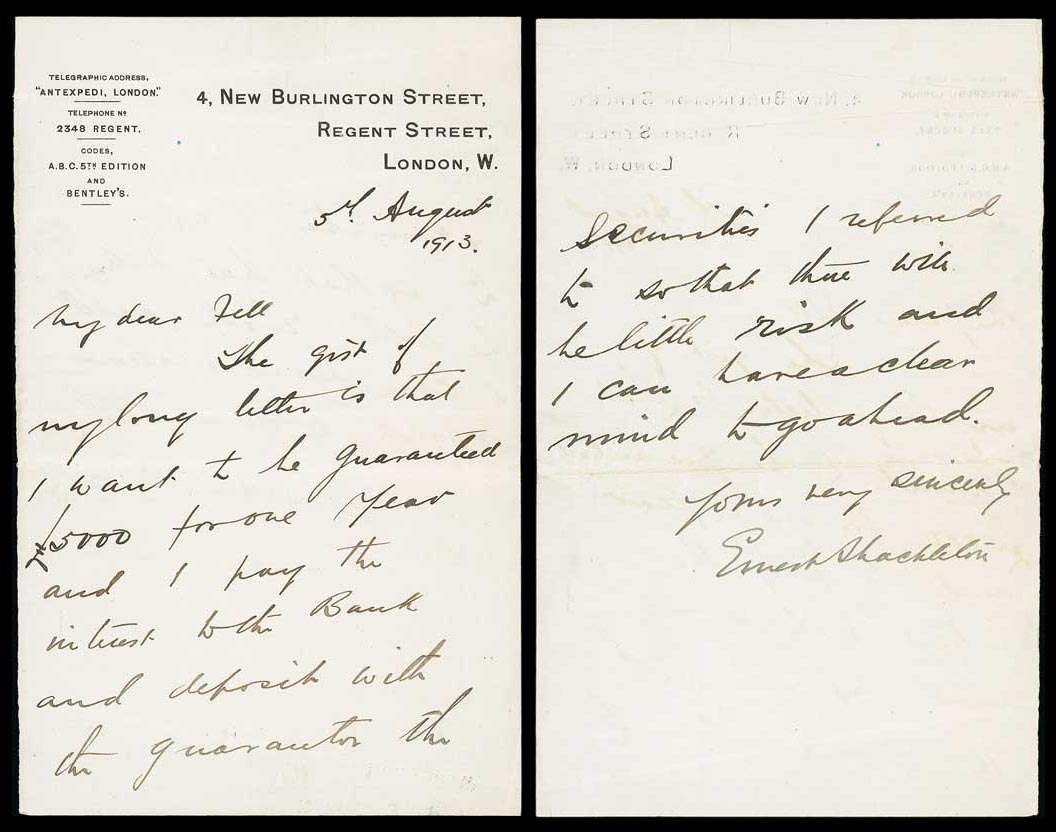 TELEGRAPHIC ADDRESS,
"ANTEXPEDI, LONDON."
TELEPHONE Nº
2348 REGENT.
CODES,
A.B.C. 5TH EDITION
AND
BENTLEY'S.
4, NEW BURLINGTON STREET,
REGENT STREET,
LONDON, W.
5th August
1913.
My dear Fell
The gist of
my long letter is that
I want to be guaranteed
£5000 for one year
and I pay the
interest to the Bank
and deposit with
the guarantor the
securities I referred
to so that there will
be little risk and
I can have a clear
mind to go ahead.
Yours very sincerely
Ernest Shackleton